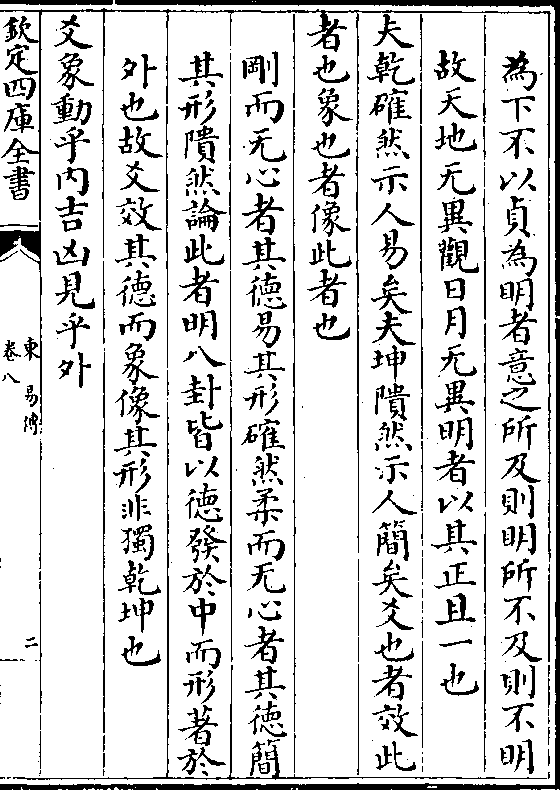 為下不以貞為明者意之所及則明所不及則不明
故天地无異觀日月无異明者以其正且一也
夫乾確然示人易矣夫坤隤然示人簡矣爻也者效此
者也象也者像此者也
剛而无心者其德易其形確然柔而无心者其德簡
其形隤然論此者明八卦皆以德發於中而形著於
外也故爻效其德而象像其形非獨乾坤也
爻象動乎内吉凶見乎外
欽定四庫全書
東易傳
卷八
二